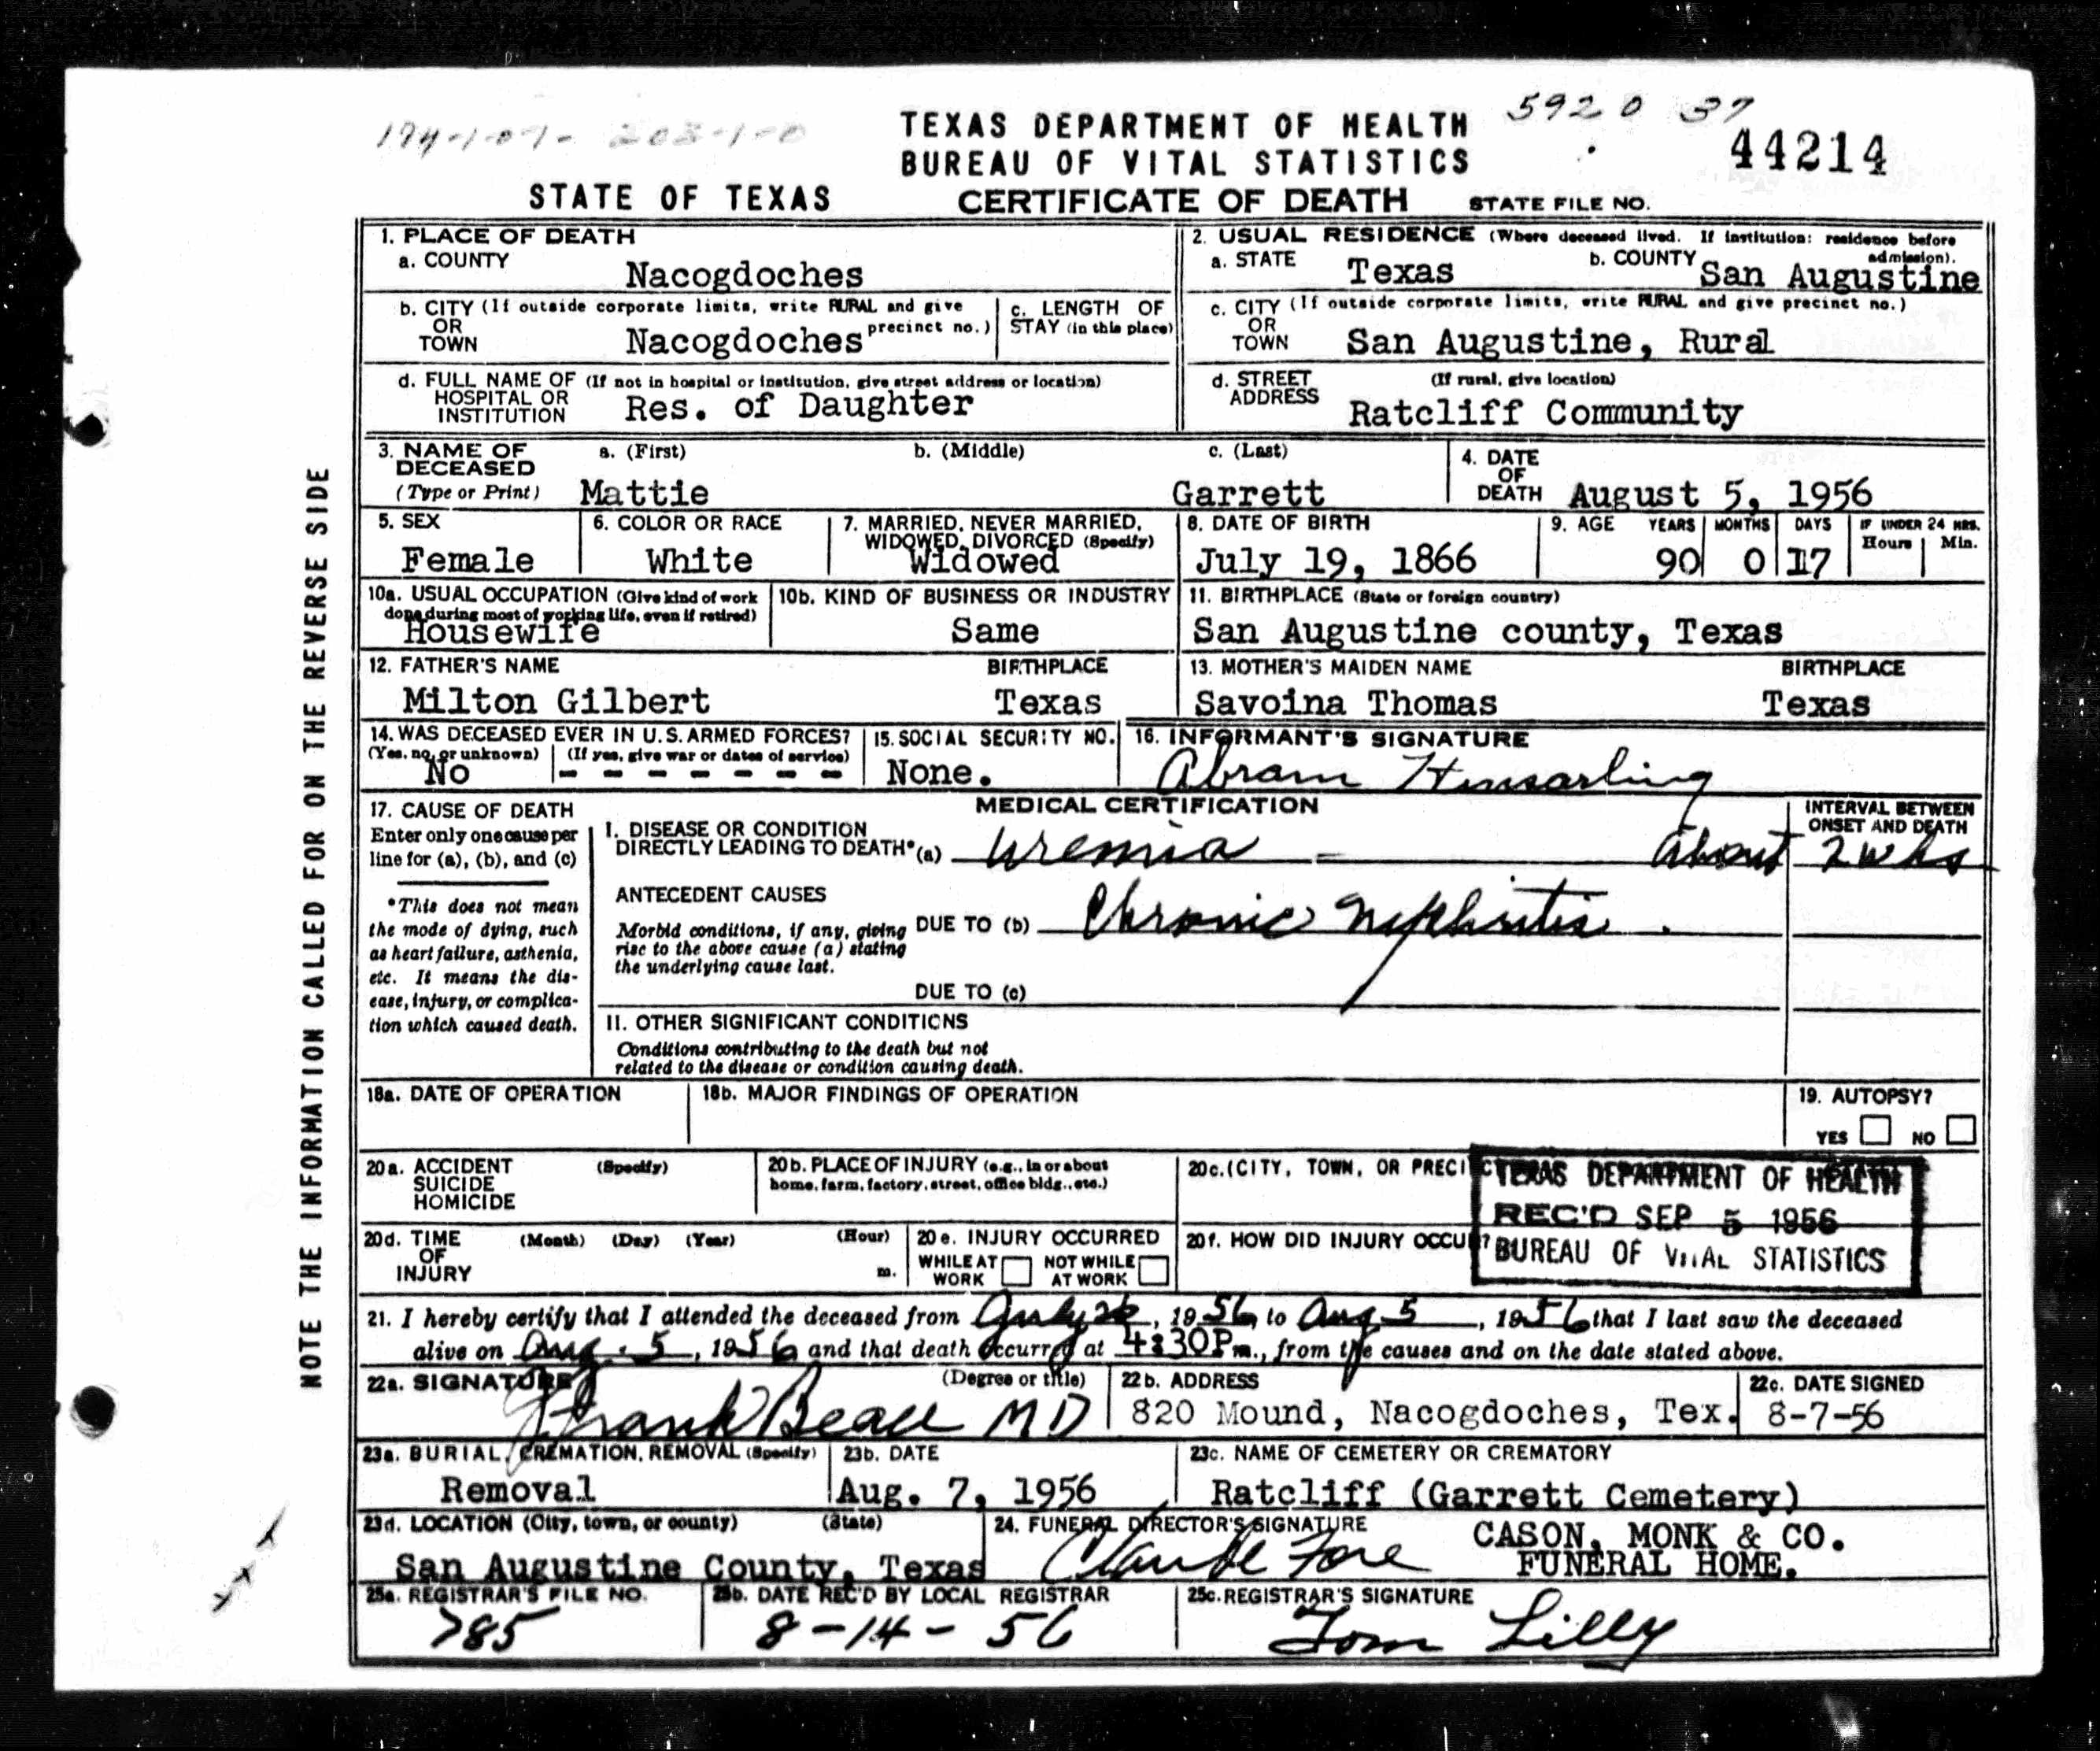 174-1-07- 203-1-0
5920 37
TEXAS DEPARTMENT OF HEALTH
BUREAU OF VITAL STATISTICS
44214
STATE OF TEXAS CERTIFICATE OF DEATH STATE FILE NO.
NOTE THE INFORMATION CALLED FOR ON THE REVERSE SIDE
1. PLACE OF DEATH
a. COUNTY Nacogdoches
2. USUAL RESIDENCE (Where deceased lived. If institution: residence before admission).
a. STATE Texas b. COUNTY San Augustine
b. CITY (If outside corporate limits, write RURAL and give precinct no.)
OR
TOWN Nacogdoches
c. LENGTH OF
STAY (in this place)
c. CITY (If outside corporate limits, write RURAL and give precinct no.)
OR
TOWN San Augustine, Rural
d. FULL NAME OF (If not in hospital or institution, give street address or location)
HOSPITAL OR
INSTITUTION Res. of Daughter
d. STREET (If rural, give location)
ADDRESS Ratcliff Community
3. NAME OF DECEASED (Type or Print)
a. (First) b. (Middle) c. (Last)
Mattie Garrett
4. DATE OF DEATH August 5, 1956
5. SEX
Female
6. COLOR OR RACE
White
7. MARRIED, NEVER MARRIED,
WIDOWED, DIVORCED (Specify)
Widowed
8. DATE OF BIRTH
July 19, 1866
9. AGE YEARS MONTHS DAYS IF UNDER 24 HRS.
Hours Min.
90 0 17
10a. USUAL OCCUPATION (Give kind of work
done during most of working life, even if retired)
Housewife
10b. KIND OF BUSINESS OR INDUSTRY
Same
11. BIRTHPLACE (State or foreign country)
San Augustine county, Texas
12. FATHER'S NAME BIRTHPLACE
Milton Gilbert Texas
13. MOTHER'S MAIDEN NAME BIRTHPLACE
Savoina Thomas Texas
14. WAS DECEASED EVER IN U.S. ARMED FORCES?
(Yes, no, or unknown) (If yes, give war or dates of service)
No - - - - - - -
15. SOCIAL SECURITY NO.
None.
16. INFORMANT'S SIGNATURE
Abram Hensarling
17. CAUSE OF DEATH
Enter only one cause per
line for (a), (b), and (c)
*This does not mean
the mode of dying, such
as heart failure, asthenia,
etc. It means the dis-
ease, injury, or complica-
tion which caused death.
MEDICAL CERTIFICATION
INTERVAL BETWEEN
ONSET AND DEATH
I. DISEASE OR CONDITION
DIRECTLY LEADING TO DEATH* (a) Uremia - About 2 wks
ANTECEDENT CAUSES
Morbid conditions, if any, giving
rise to the above cause (a) stating
the underlying cause last.
DUE TO (b) Chronic Nephritis.
DUE TO (c)
II. OTHER SIGNIFICANT CONDITIONS
Conditions contributing to the death but not
related to the disease or condition causing death.
18a. DATE OF OPERATION
18b. MAJOR FINDINGS OF OPERATION
19. AUTOPSY?
YES NO
20a. ACCIDENT (Specify)
SUICIDE
HOMICIDE
20b. PLACE OF INJURY (e.g., in or about
home, farm, factory, street, office bldg., etc.)
20c. (CITY, TOWN, OR PRECINCT
TEXAS DEPARTMENT OF HEALTH
REC'D SEP 5 1956
BUREAU OF VITAL STATISTICS
20d. TIME (Month) (Day) (Year) (Hour)
OF
INJURY m.
20e. INJURY OCCURRED
WHILE AT WORK NOT WHILE AT WORK
20f. HOW DID INJURY OCCUR?
21. I hereby certify that I attended the deceased from July 26, 1956, to Aug 5, 1956 that I last saw the deceased
alive on Aug. 5, 1956 and that death occurred at 4:30P m., from the causes and on the date stated above.
22a. SIGNATURE (Degree or title)
Frank Beall MD
22b. ADDRESS
820 Mound, Nacogdoches, Tex.
22c. DATE SIGNED
8-7-56
23a. BURIAL, CREMATION, REMOVAL (Specify)
Removal
23b. DATE
Aug. 7, 1956
23c. NAME OF CEMETERY OR CREMATORY
Ratcliff (Garrett Cemetery)
23d. LOCATION (City, town, or county) (State)
San Augustine County, Texas
24. FUNERAL DIRECTOR'S SIGNATURE
Claude Fore
CASON, MONK & CO.
FUNERAL HOME.
25a. REGISTRAR'S FILE NO.
785
25b. DATE REC'D BY LOCAL REGISTRAR
8-14-56
25c. REGISTRAR'S SIGNATURE
Tom Lilly